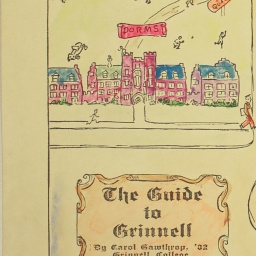 DORMS!
The Guide
to
Grinnell
By Carol Gawthrop, '32
Grinnell College